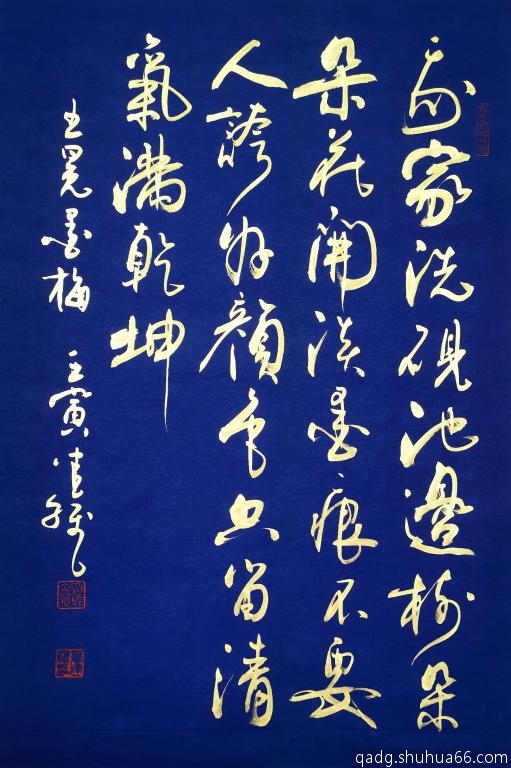 我家洗硯池邊樹朵
朵花開淡墨痕不要
人誇好顏色只留清
氣滿乾坤
王冕墨梅 壬寅
qadg.shuhua66.com